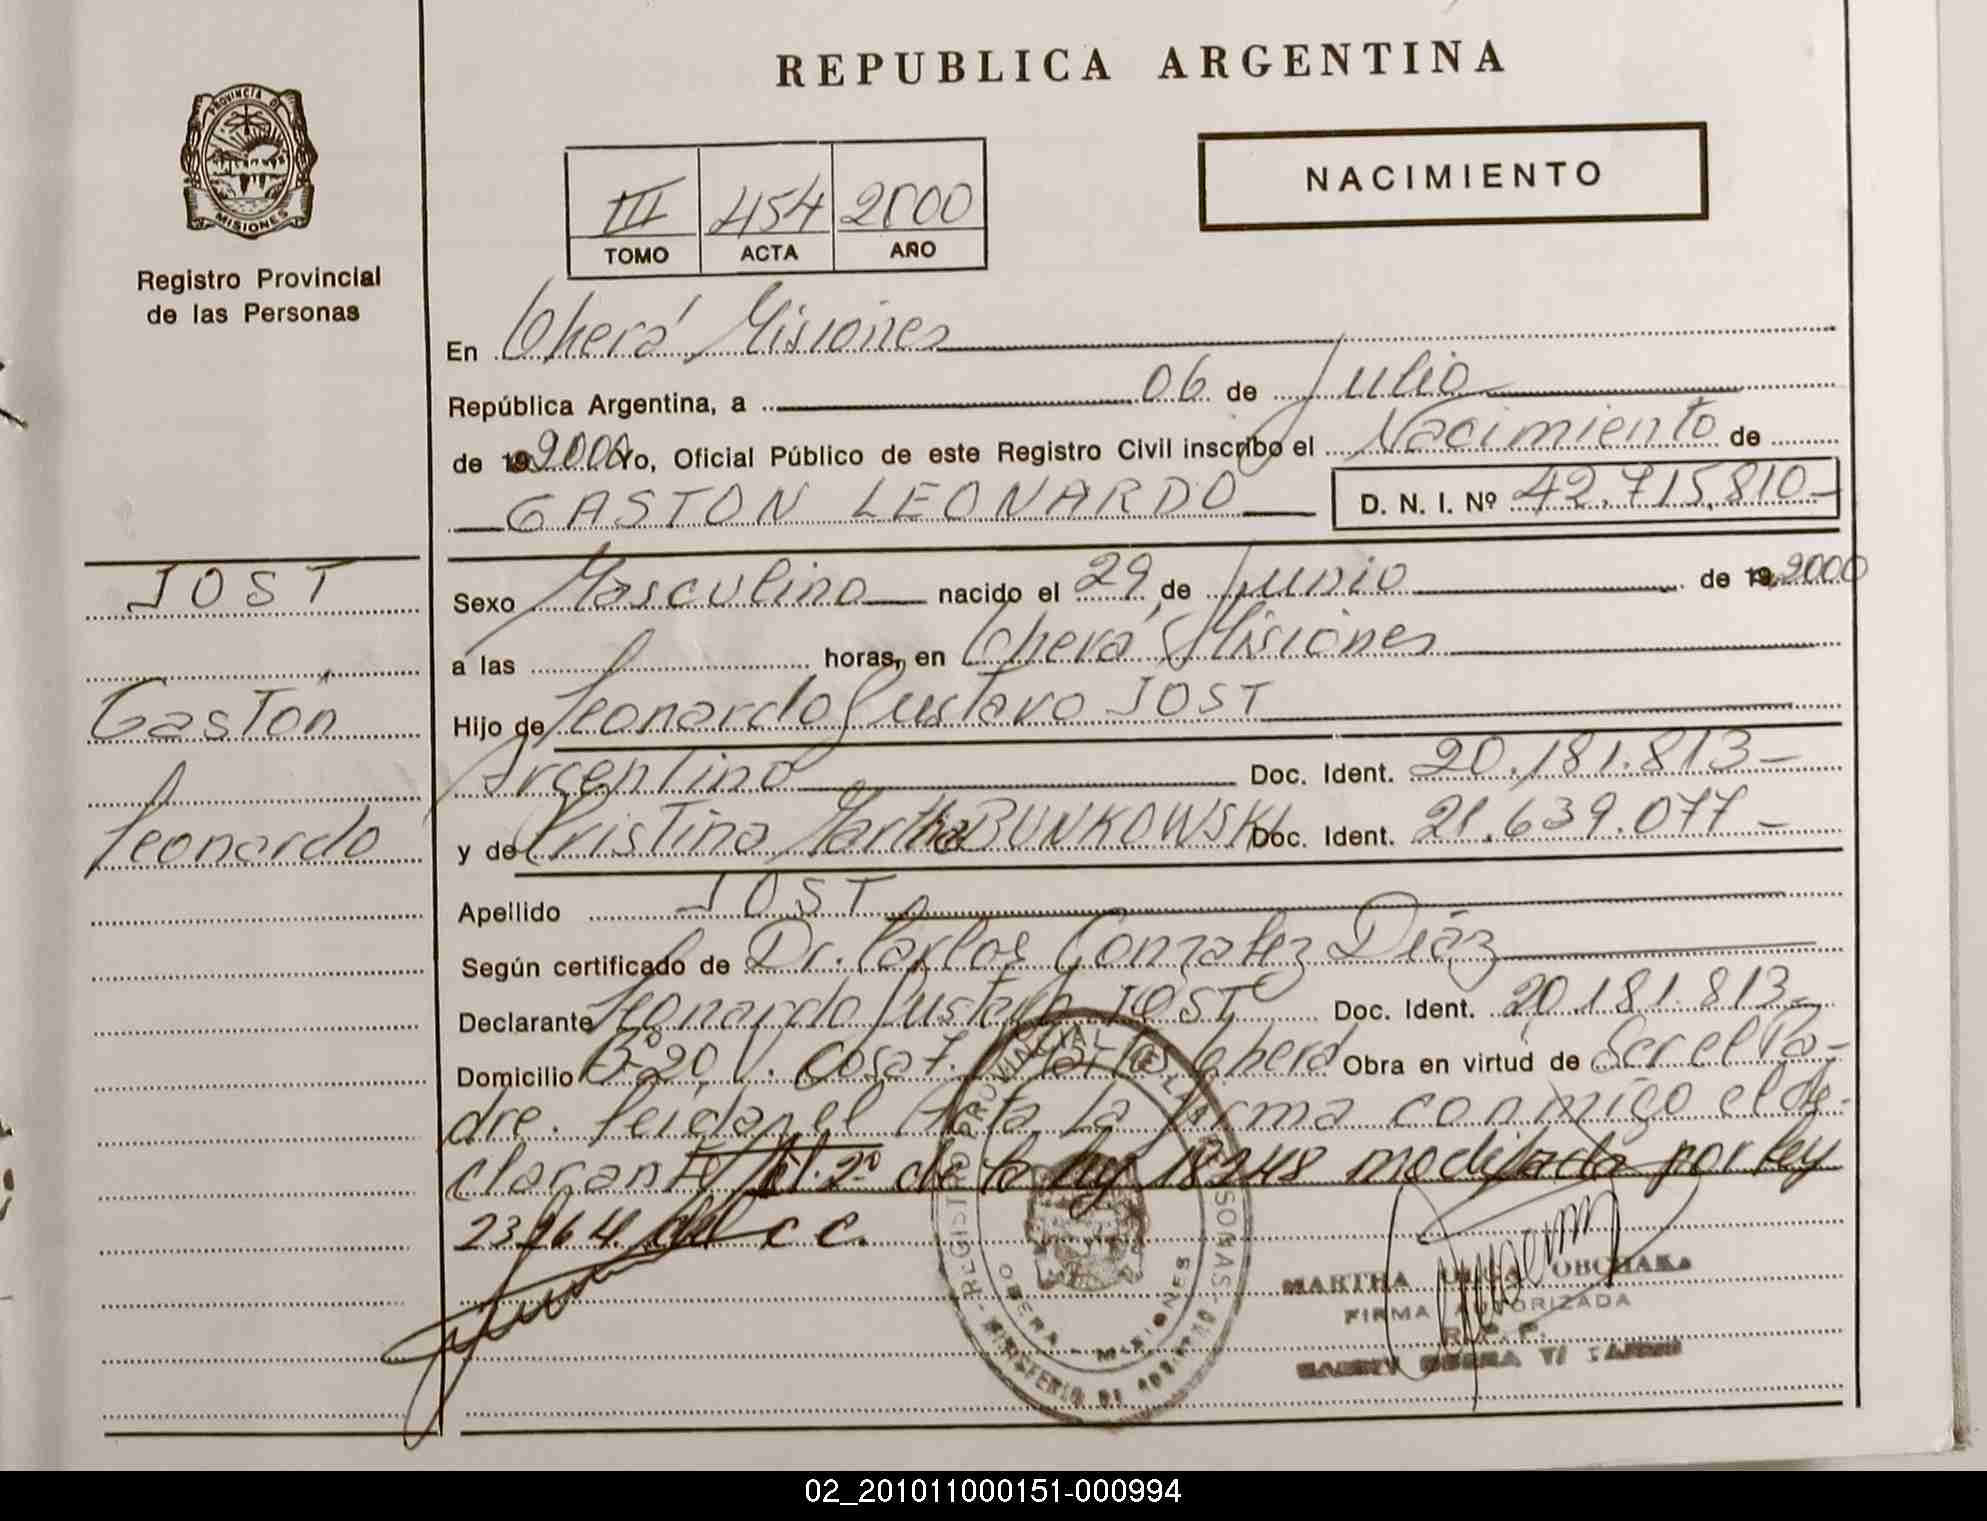 REPUBLICA ARGENTINA
PROVINCIA DE
MISIONES
Registro Provincial
de las Personas
III 454 2000
TOMO ACTA AÑO
NACIMIENTO
En Oberá Misiones
República Argentina, a 06 de Julio
de 19 2000 Yo, Oficial Público de este Registro Civil inscribo el Nacimiento de
GASTON LEONARDO D. N. I. Nº 42.715.810-
JOST
Gastón
Leonardo
Sexo Masculino nacido el 29 de Junio de 19 2000
a las horas, en Oberá Misiones
Hijo de Leonardo Gustavo JOST
Argentino Doc. Ident. 20.181.813-
y de Cristina Martha BUNKOWSKI Doc. Ident. 21.639.077-
Apellido JOST
Según certificado de Dr. Carlos Gonzalez Diáz
Declarante Leonardo Gustavo JOST Doc. Ident. 20.181.813-
Domicilio Bº 20 V. Cosa 7. Oberá Obra en virtud de Ser el Pa-
dre. Leida el Acta La firma conmigo el de-
clarante 2º de la ley 18248 modificada por ley
23264 del c c.
REGISTRO PROVINCIAL DE LAS PERSONAS
MINISTERIO DE GOBIERNO
OBERA - MISIONES
MARTHA OBCHAK
FIRMA AUTORIZADA
R. P. P.
OBERA
02_201011000151-000994